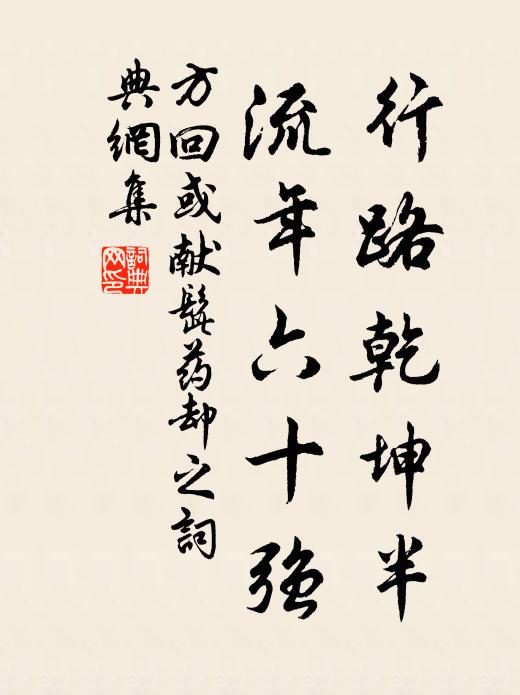 行路乾坤半
流年六十强
方回或献髭药却之詞
典網集
詞典網印